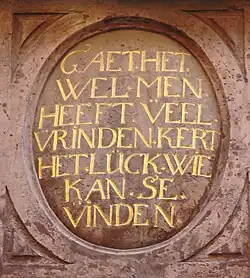 GAETHET
WEL·MEN·
HEEFT·VEEL
VRINDEN·KERT
HET·LÜCK·WIE
KAN·SE·
VINDEN·